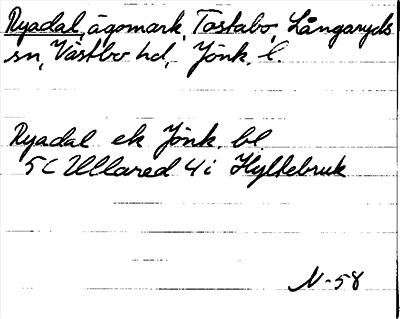 Ryadal, ägomark, Tostabo, Långaryds
sn, Västbo hd, Jönk. l.
Ryadal ek Jönk. bl
5C Ullared 4i Hyltebruk
N-58